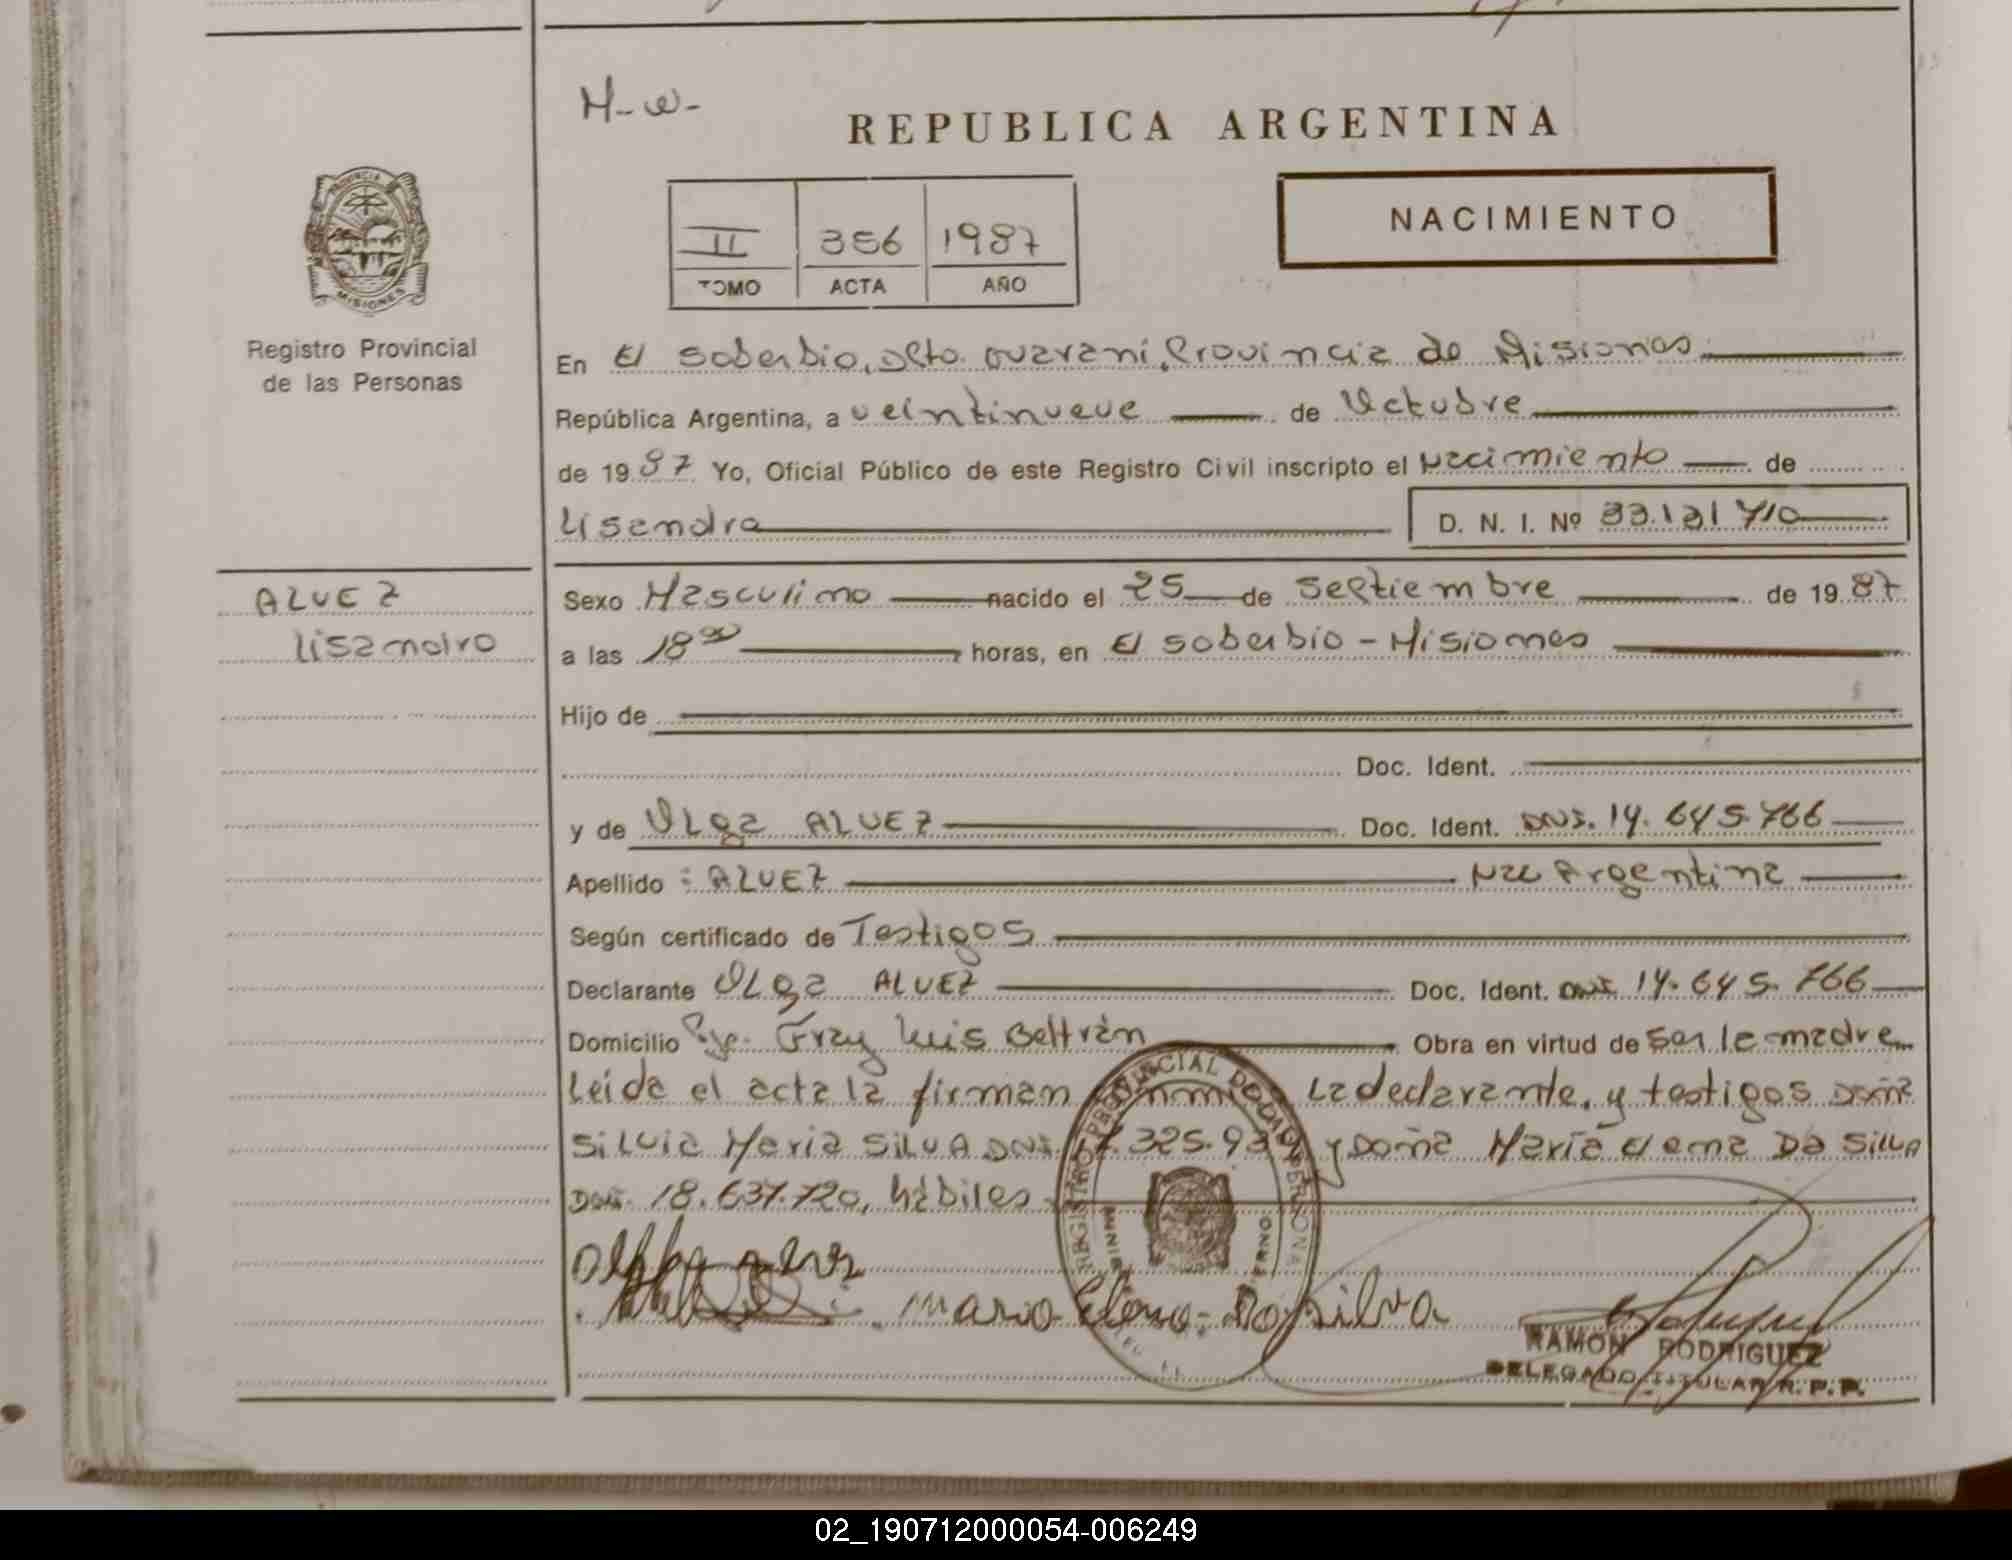 H-W-
REPUBLICA ARGENTINA
II 356 1987
TOMO ACTA AÑO
NACIMIENTO
PROVINCIA
MISIONES
Registro Provincial
de las Personas
En El Soberbio, Dpto. Guarani, Provincia de Misiones
República Argentina, a veintinueve de Octubre
de 1987 Yo, Oficial Público de este Registro Civil inscripto el Nacimiento de
Lisandro D. N. I. Nº 33.121.710
ALVEZ
Lisandro
Sexo Masculino nacido el 25 de Septiembre de 1987
a las 18⁰⁰ horas, en El Soberbio - Misiones
Hijo de
Doc. Ident.
y de Olga ALVEZ Doc. Ident. DNI. 14.645.766
Apellido : ALVEZ Nac Argentina
Según certificado de Testigos
Declarante Olga ALVEZ Doc. Ident. DNI 14.645.766
Domicilio Pje. Fray Luis Beltrán Obra en virtud de ser la madre
Leída el acta la firman la declarante, y testigos Doña
Silvia Maria SILVA DNI 325.93 y Doña María Elena Da SILVA
DNI. 18.637.720, hábiles
Maria Elena Da Silva
RAMON RODRIGUEZ
DELEGADO TITULAR R. P. P.
02_190712000054-006249